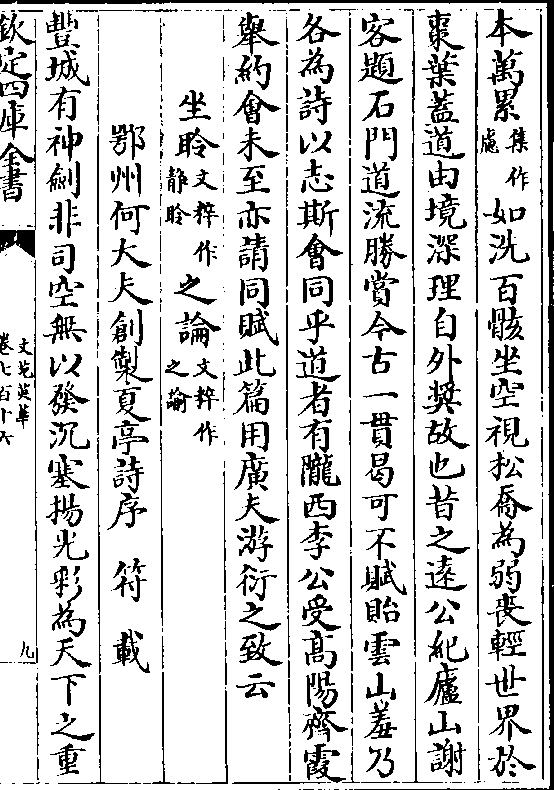 本萬累集作慮如洗百骸坐空視松喬為弱喪輕世界於
棗葉蓋道由境深理自外奬故也昔之遠公紀廬山謝
客題石門道流勝賞今古一貫曷可不賦貽雲山羞乃
各為詩以志斯會同乎道者有隴西李公受髙陽齊霞
舉約會未至亦請同賦此篇用廣夫游衍之致云
坐聆文粹作靜聆之論文粹作之諭
鄂州何大夫創製夏亭詩序 符載
豐城有神劍非司空無以發沉塞揚光彩為天下之重
欽定四庫全書
文苑英華
卷七百十六
九